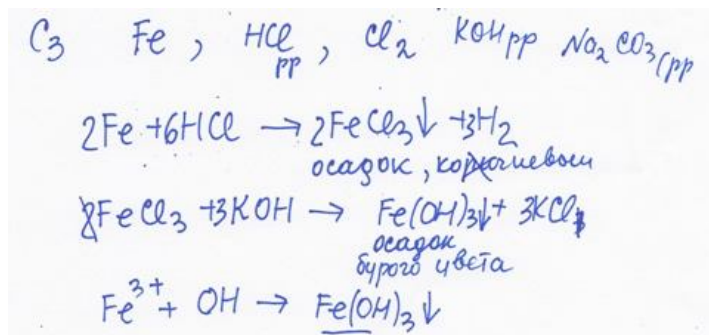 С3 Fe, HCl рр, Cl2 KOH рр Na2CO3(рр
2Fe + 6HCl → 2FeCl3↓ + 3H2
осадок, коричневый
FeCl3 + 3KOH → Fe(OH)3↓ + 3KCl
осадок
бурого цвета
Fe3+ + OH → Fe(OH)3↓